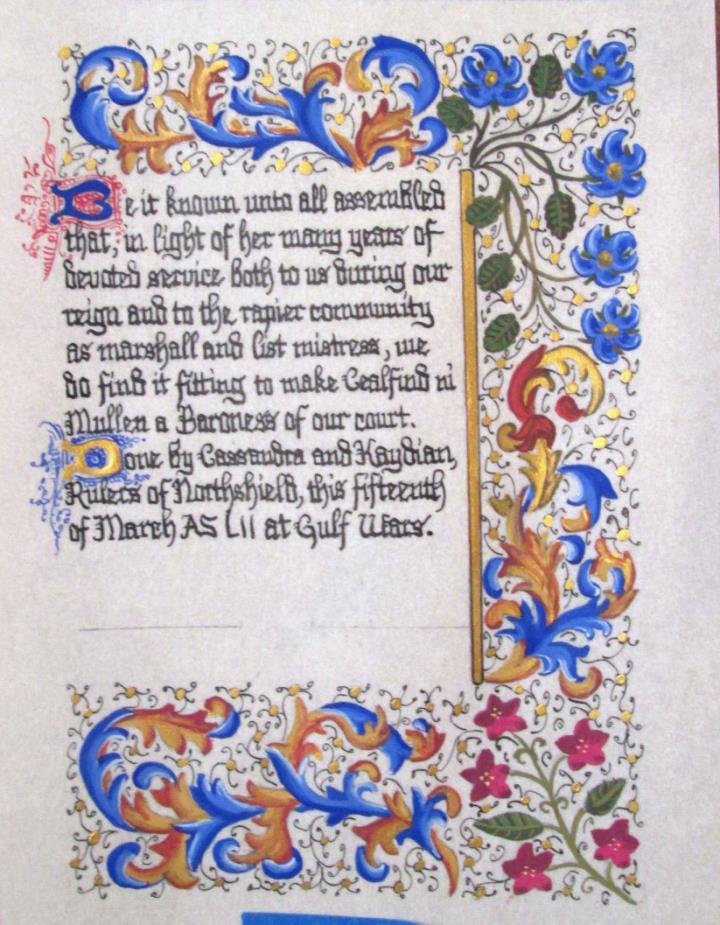 Be it known unto all assembled
that, in light of her many years of
devoted service both to us during our
reign and to the rapier community
as marshall and list mistress, we
do find it fitting to make Cealfind ni
Mullen a Baroness of our court.
Done by Cassandra and Kaydian,
Rulers of Northshield, this fifteenth
of March AS LII at Gulf Wars.